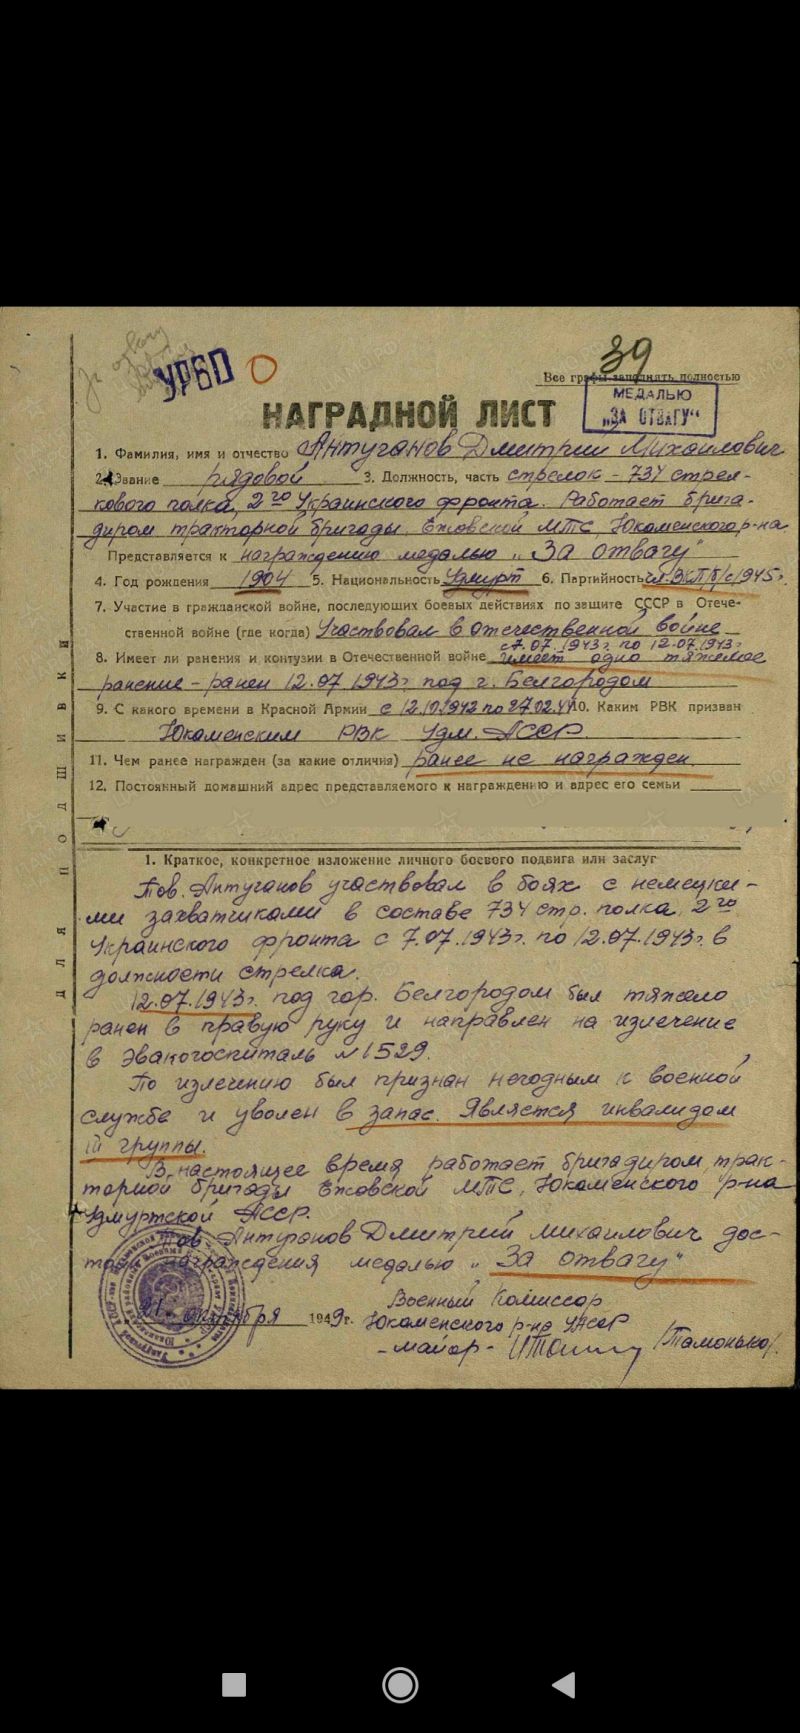 39
УРБD О
Все графы заполнять полностью
МЕДАЛЬЮ
„ЗА ОТВАГУ“
НАГРАДНОЙ ЛИСТ
1. Фамилия, имя и отчество Антуганов Дмитрий Михайлович
2. Звание рядовой 3. Должность, часть стрелок - 734 стрел-
кового полка, 2го Украинского фронта. Работает брига-
диром тракторной бригады, Ежовской МТС, Юкаменского р-на
Представляется к награждению медалью „За отвагу"
4. Год рождения 1904 5. Национальность Удмурт 6. Партийность чл. ВКП/б/ с 1945г.
7. Участие в гражданской войне, последующих боевых действиях по защите СССР в Отече-
ственной войне (где когда) Участвовал в отечественной войне
с 7.07.1943г. по 12.07.1943г.
8. Имеет ли ранения и контузии в Отечественной войне имеет одно тяжелое
ранение - ранен 12.07.1943г. под г. Белгородом
9. С какого времени в Красной Армии с 12.10.1942 по 27.02.44 10. Каким РВК призван
Юкаменским РВК Удм. АССР.
11. Чем ранее награжден (за какие отличия) ранее не награжден.
12. Постоянный домашний адрес представляемого к награждению и адрес его семьи
1. Краткое, конкретное изложение личного боевого подвига или заслуг
Тов. Антуганов участвовал в боях с немецки-
ми захватчиками в составе 734 стр. полка, 2го
Украинского фронта с 7.07.1943г. по 12.07.1943г. в
должности стрелка.
12.07.1943г. под гор. Белгородом был тяжело
ранен в правую руку и направлен на излечение
в эвакогоспиталь №1529.
По излечению был признан негодным к военной
службе и уволен в запас. Является инвалидом
III группы.
В настоящее время работает бригадиром трак-
торной бригады Ежовской МТС, Юкаменского р-на
Удмуртской АССР.
Тов. Антуганов Дмитрий Михайлович дос-
тоин награждения медалью „За отвагу"
Военный Комиссар
21 октября 1949г. Юкаменского р-на УАССР
- майор - /Тамонько/.
ДЛЯ ПОДШИВКИ